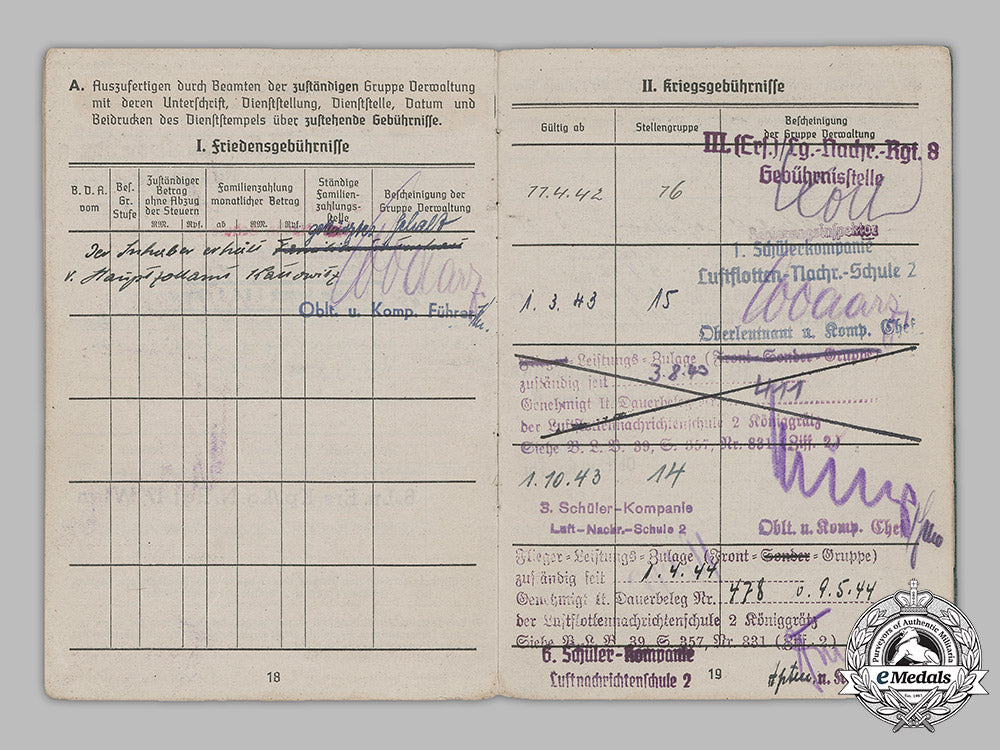 A. Auszufertigen durch Beamten der zuständigen Gruppe Verwaltung
mit deren Unterschrift, Dienststellung, Dienststelle, Datum und
Beidrucken des Dienststempels über zustehende Gebührnisse.
I. Friedensgebührnisse
B. D. A. vom
Bes. Gr. Stufe
Zuständiger Betrag ohne Abzug der Steuern
RM. Rpf.
Familienzahlung monatlicher Betrag
ab RM. Rpf.
Ständige Familienzahlungsstelle
Bescheinigung der Gruppe Verwaltung
Der Inhaber erhält
v. Hauptzollamt Kattowitz
Oblt. u. Komp. Führer
18
II. Kriegsgebührnisse
Gültig ab
Stellengruppe
Bescheinigung
der Gruppe Verwaltung
III. (Ers.)/Lg.-Nachr.-Rgt. 8
Gebührnisstelle
11.4.42 16
1. Schülerkompanie
Luftflotten-Nachr.-Schule 2
1. 3. 43 15
Oberleutnant u. Komp. Chef
Flieger-Leistungs-Zulage (Front-Sonder-Gruppe)
zuständig seit 3.8.43
Genehmigt lt. Dauerbeleg 411
der Luftflottennachrichtenschule 2 Königgrätz
Siehe B. L. B. 39, S. 357, Nr. 831 (Ziff. 2)
1.10.43 14
3. Schüler-Kompanie
Luft-Nachr.-Schule 2
Oblt. u. Komp. Chef
Flieger-Leistungs-Zulage (Front-Sonder-Gruppe)
zuständig seit 1.4.44
Genehmigt lt. Dauerbeleg Nr. 478 v. 9.5.44
der Luftflottennachrichtenschule 2 Königgrätz
Siehe B. L. B. 39, S. 357, Nr. 831 (Ziff. 2)
6. Schüler-Kompanie
Luftnachrichtenschule 2
19
Hptm. u. K
Purveyors of Authentic Militaria
eMedals
Est. 1967